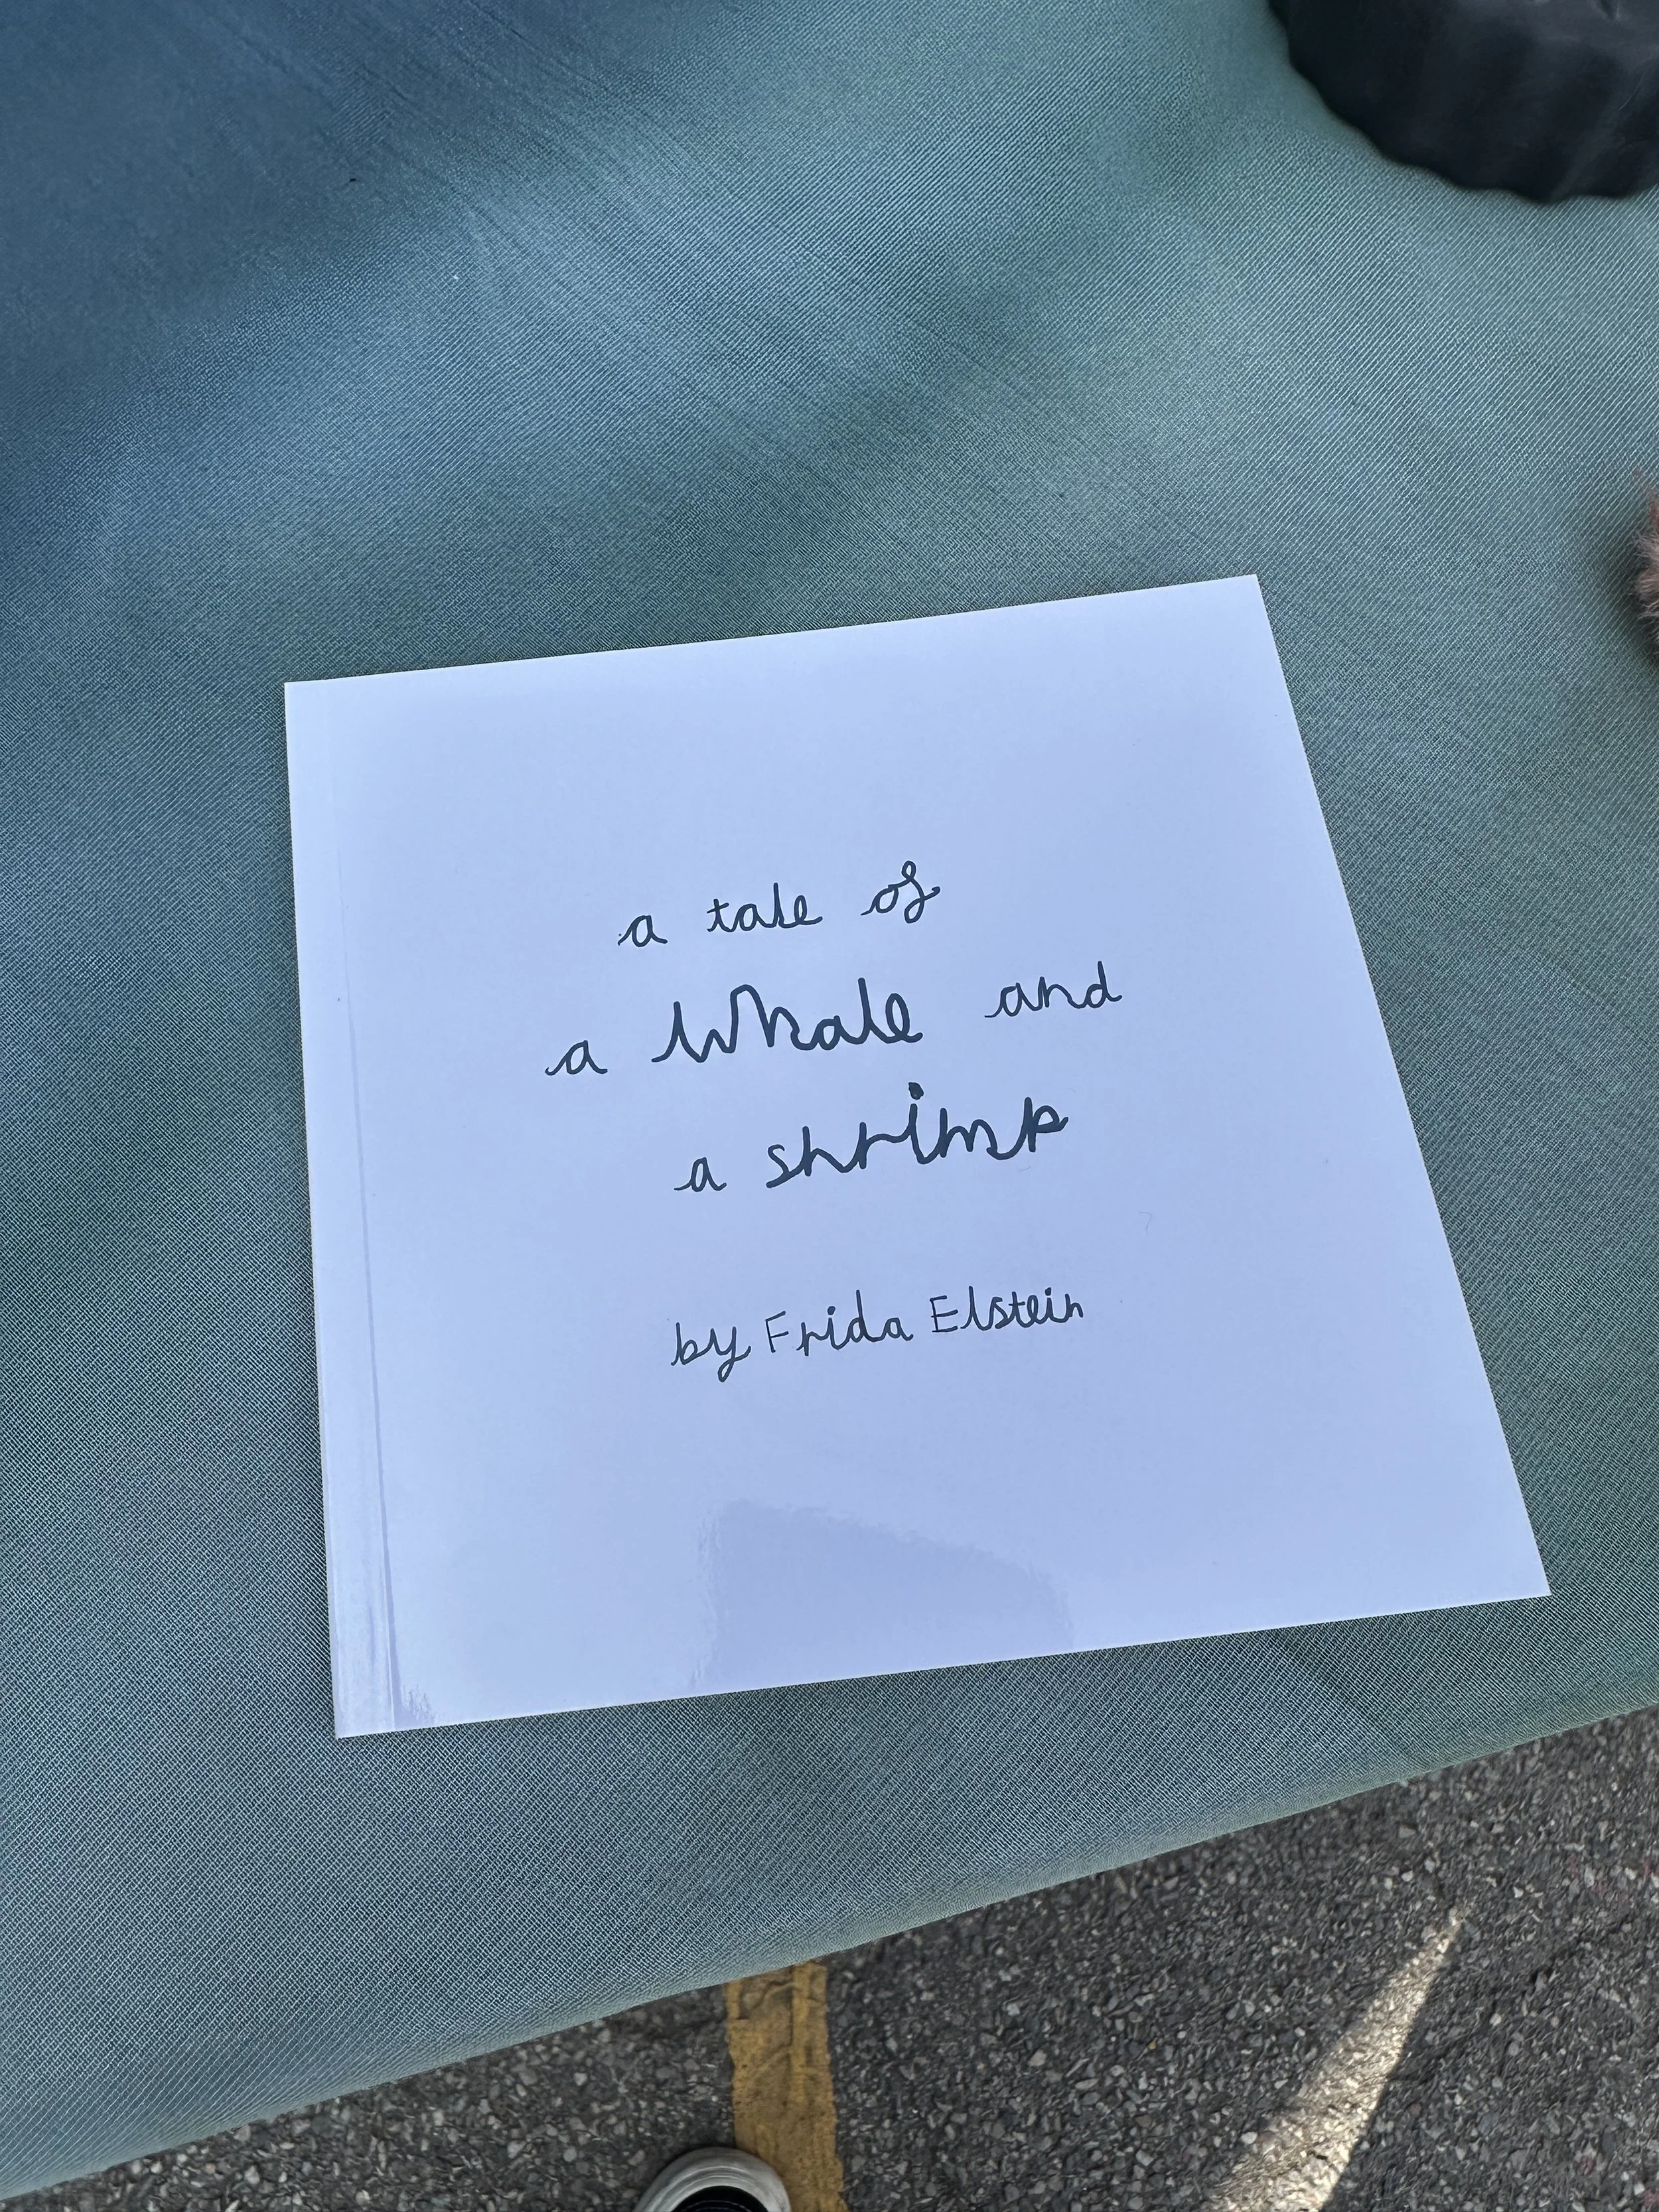 a tale of
a Whale and
a shrimp
by Frida Elstein